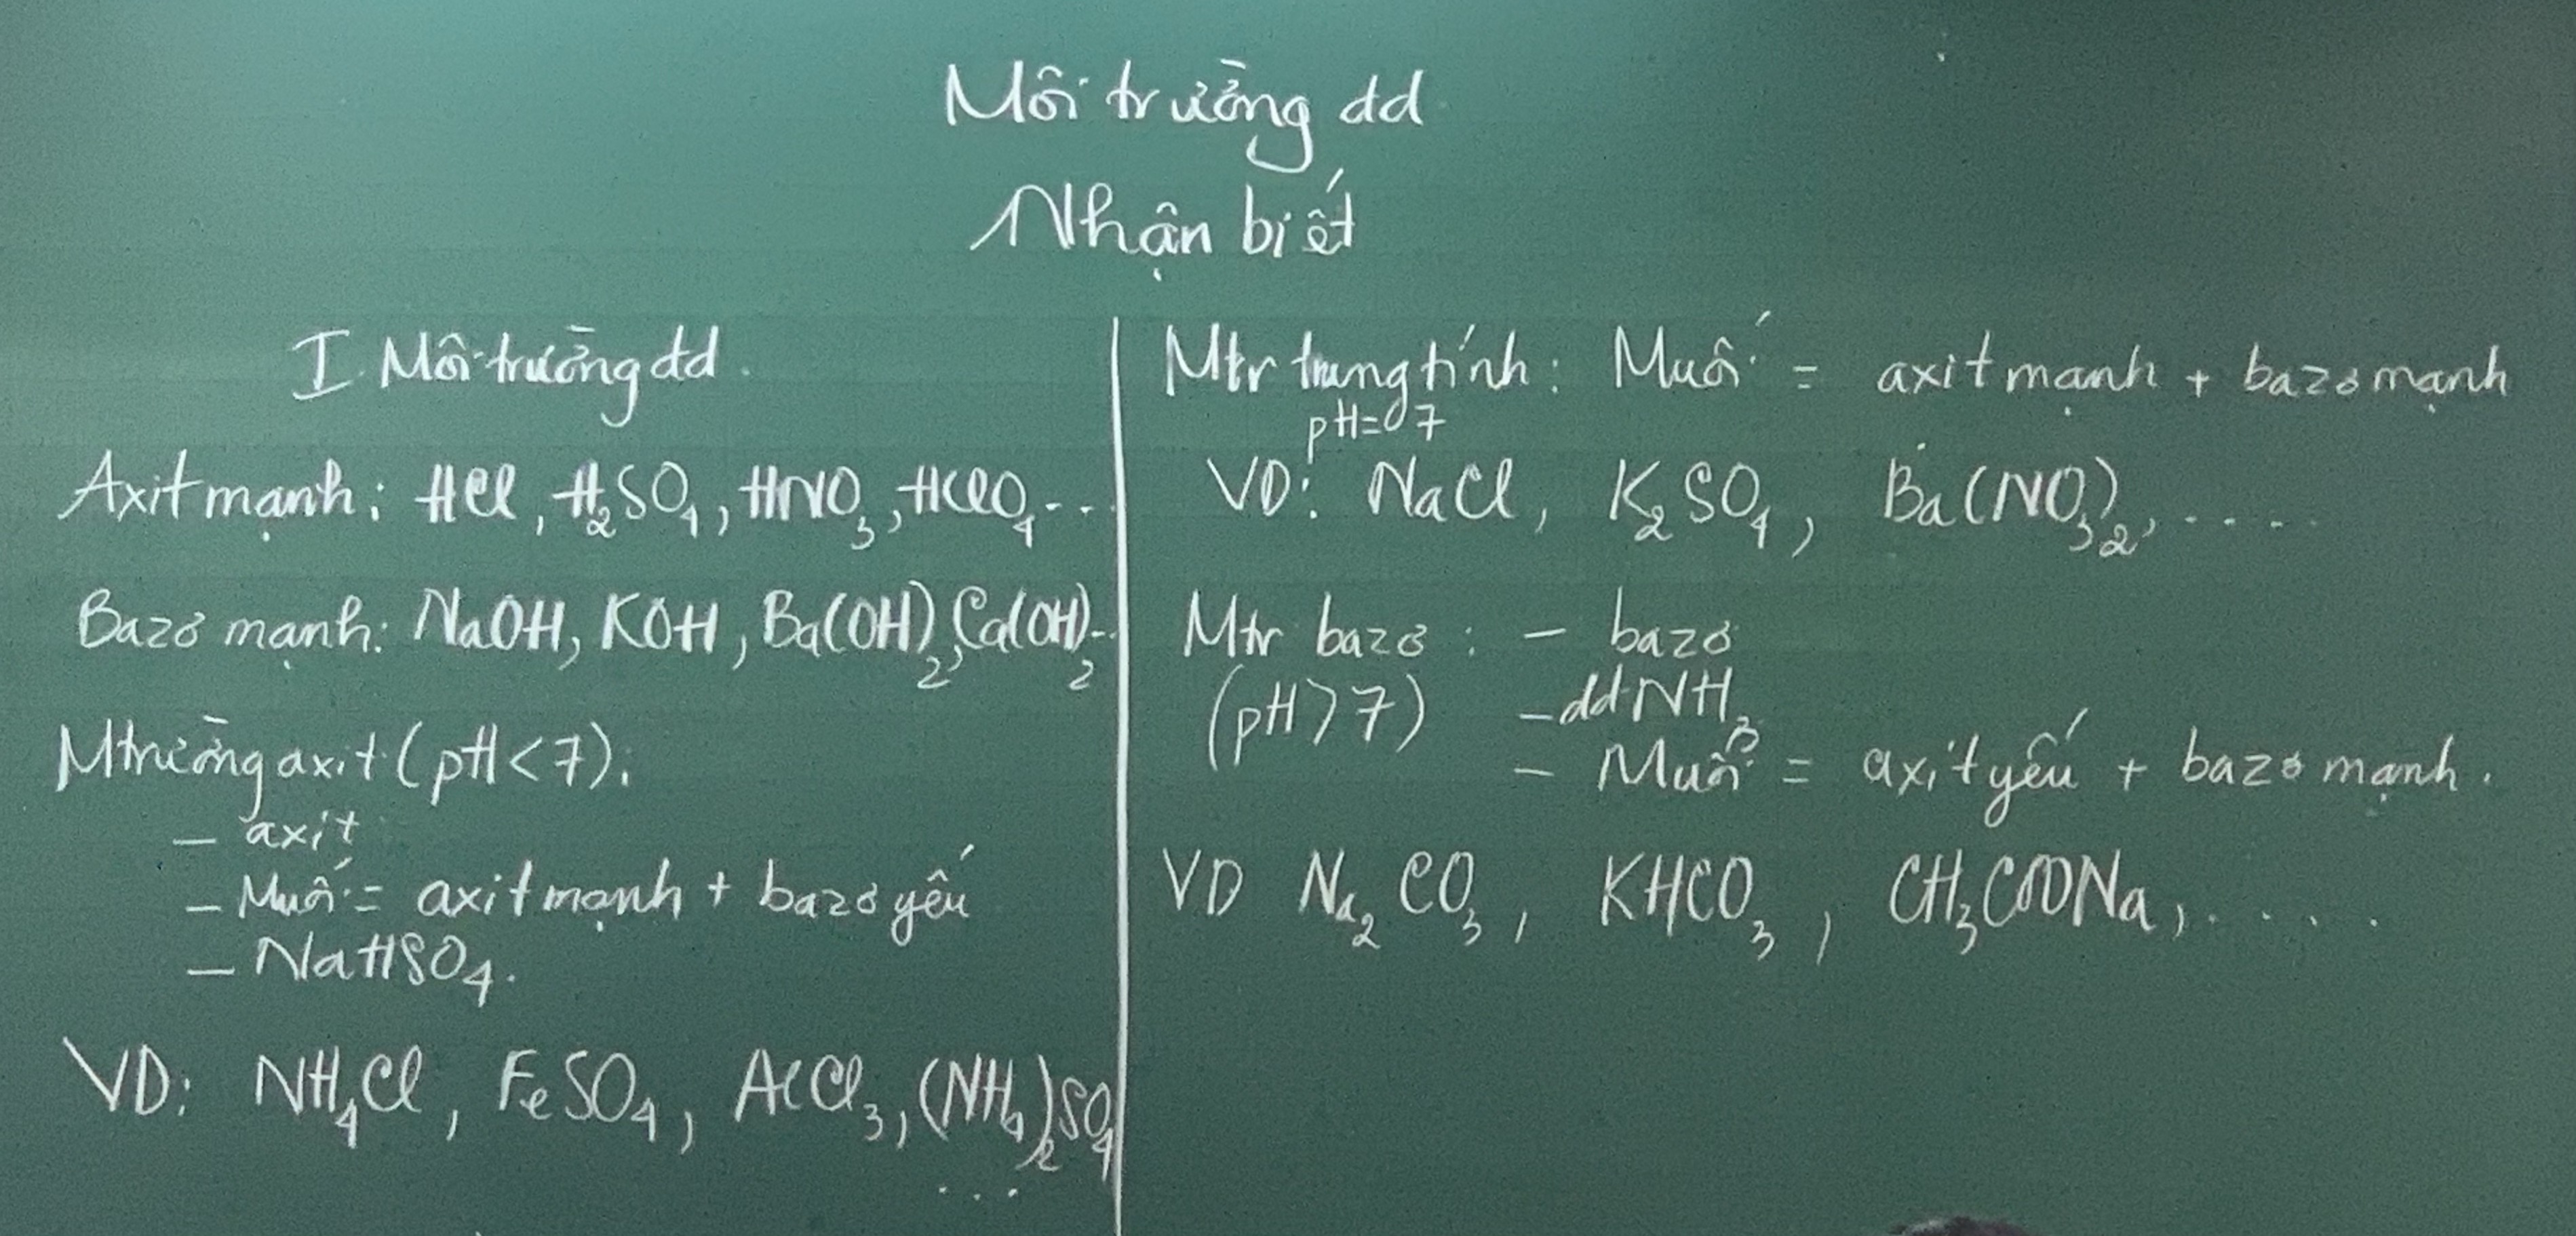 Môi trường dd
Nhận biết
I. Môi trường dd.
Axit mạnh: HCl, H₂SO₄, HNO₃, HClO₄...
Bazơ mạnh: NaOH, KOH, Ba(OH)₂, Ca(OH)₂..
Mtrường axit (pH < 7):
- axit
- Muối = axit mạnh + bazơ yếu
- NaHSO₄.
VD: NH₄Cl, FeSO₄, AlCl₃, (NH₄)₂SO₄
...
Mtr trung tính: Muối = axit mạnh + bazơ mạnh
pH=7
VD: NaCl, K₂SO₄, Ba(NO₃)₂, ....
Mtr bazơ : - bazơ
(pH > 7) - dd NH₃
- Muối = axit yếu + bazơ mạnh.
VD Na₂CO₃, KHCO₃, CH₃COONa, ....